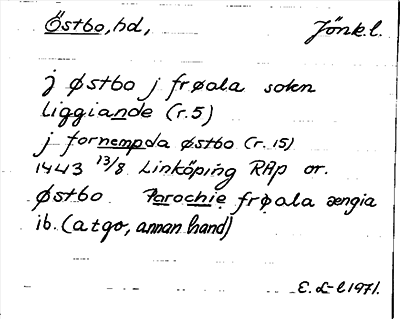 Östbo, hd, Jönk.l.
j østbo j frøala sokn
liggiande (r.5)
j fornempda østbo (r. 15)
1443 13/8 Linköping RAp or.
Østbo Parochie frøala ængia
ib. (atgo, annan hand)
E. L-l 1971.